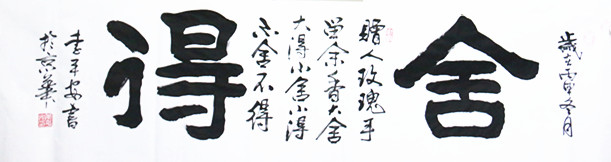 岁在丙申冬月
舍
赠人玫瑰手
留余香大舍
大得小舍小得
不舍不得
得
李平安书
於京华